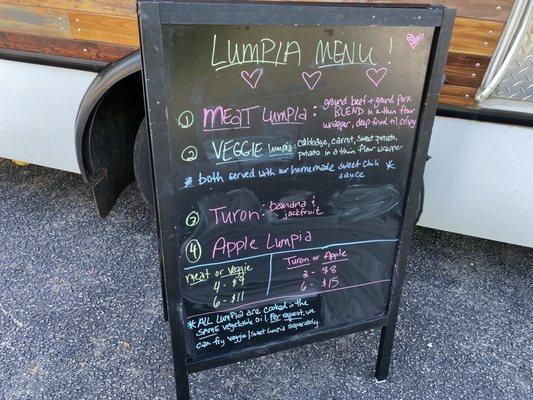 LUMPIA MENU!
① MEAT LUMPIA: ground beef + ground pork
BLEND in a thin flour
wrapper, deep fried til crispy
② VEGGIE lumpia: cabbage, carrot, sweet potato,
potato in a thin flour wrapper
* both served with our homemade sweet chili *
sauce
③ TURON: banana &
jackfruit
④ Apple LUMPIA
Meat or Veggie
4 - $9
6 - $11
Turon or Apple
3 - $8
6 - $15
*ALL Lumpia are cooked in the
SAME vegetable oil. Per request, we
can fry veggie/sweet lumpia separately.